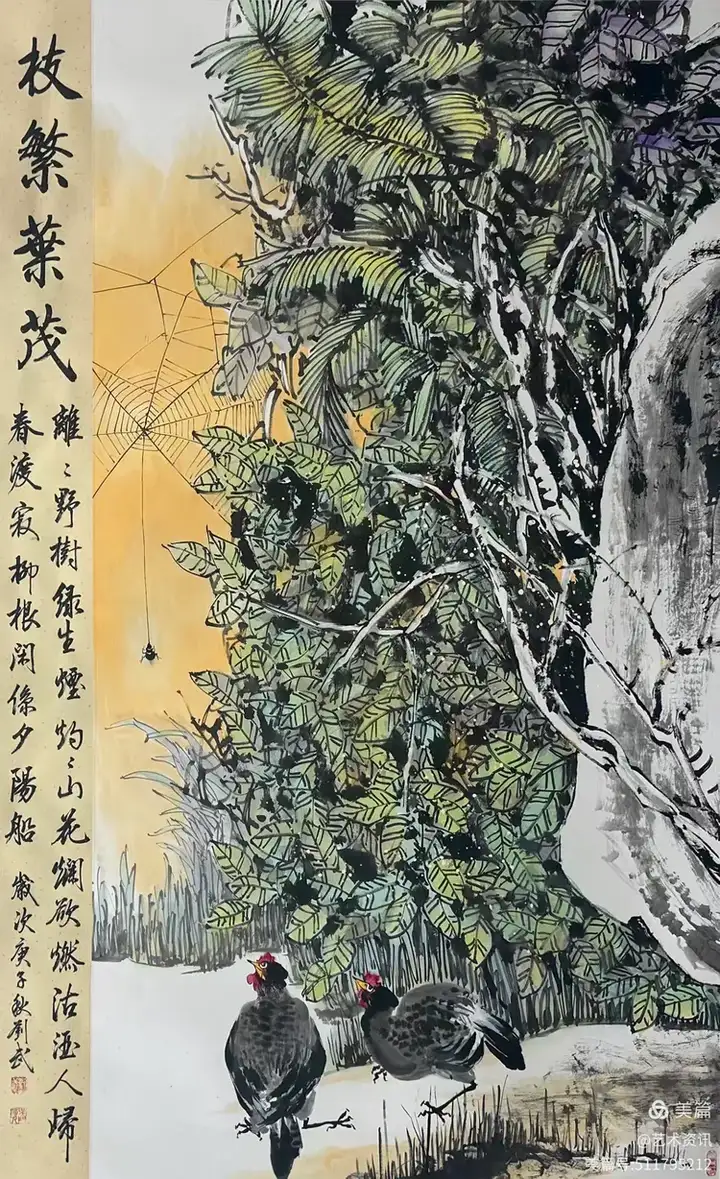 枝繁葉茂
離〻野樹緑生煙灼〻山花爛欲燃沽酒人歸
春渡寂柳根閑係夕陽船 歲次庚子秋劉武
美篇
@艺术资讯
美篇号:511793212